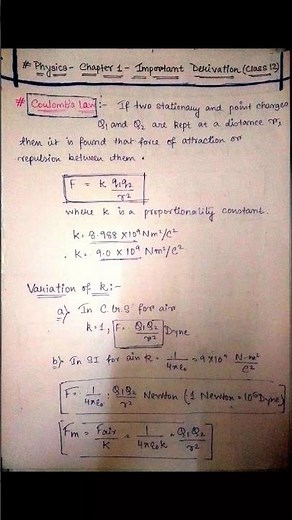 # Physics - Chapter 1 - Important Derivation (Class 12)
# Coulomb's Law :- If two stationary and point charges
Q1 and Q2 are kept at a distance r,
then it is found that force of attraction or
repulsion between them.
F = k q1q2/r²
where k is a proportionality constant.
k = 8.988 X10⁹ Nm²/C²
. k = 9.0 X 10⁹ Nm²/C²
Variation of k:-
a) In C.G.S for air
k=1, F = Q1Q2/r² Dyne
b) In SI for air k = 1/4πε0 = 9X10⁹ N-m²/C²
F = 1/4πε0 · Q1Q2/r² Newton (1 Newton = 10⁵ Dyne)
Fm = Fair/K = 1/4πε0k · Q1Q2/r²